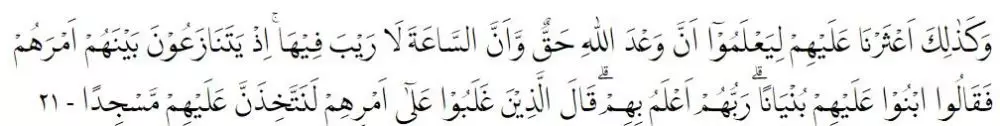 وَكَذٰلِكَ اَعْثَرْنَا عَلَيْهِمْ لِيَعْلَمُوْٓا اَنَّ وَعْدَ اللّٰهِ حَقٌّ وَّاَنَّ السَّاعَةَ لَا رَيْبَ فِيْهَاۚ اِذْ يَتَنَازَعُوْنَ بَيْنَهُمْ اَمْرَهُمْ
فَقَالُوا ابْنُوْا عَلَيْهِمْ بُنْيَانًاۗ رَبُّهُمْ اَعْلَمُ بِهِمْۗ قَالَ الَّذِيْنَ غَلَبُوْا عَلٰٓى اَمْرِهِمْ لَنَتَّخِذَنَّ عَلَيْهِمْ مَّسْجِدًا - ٢١